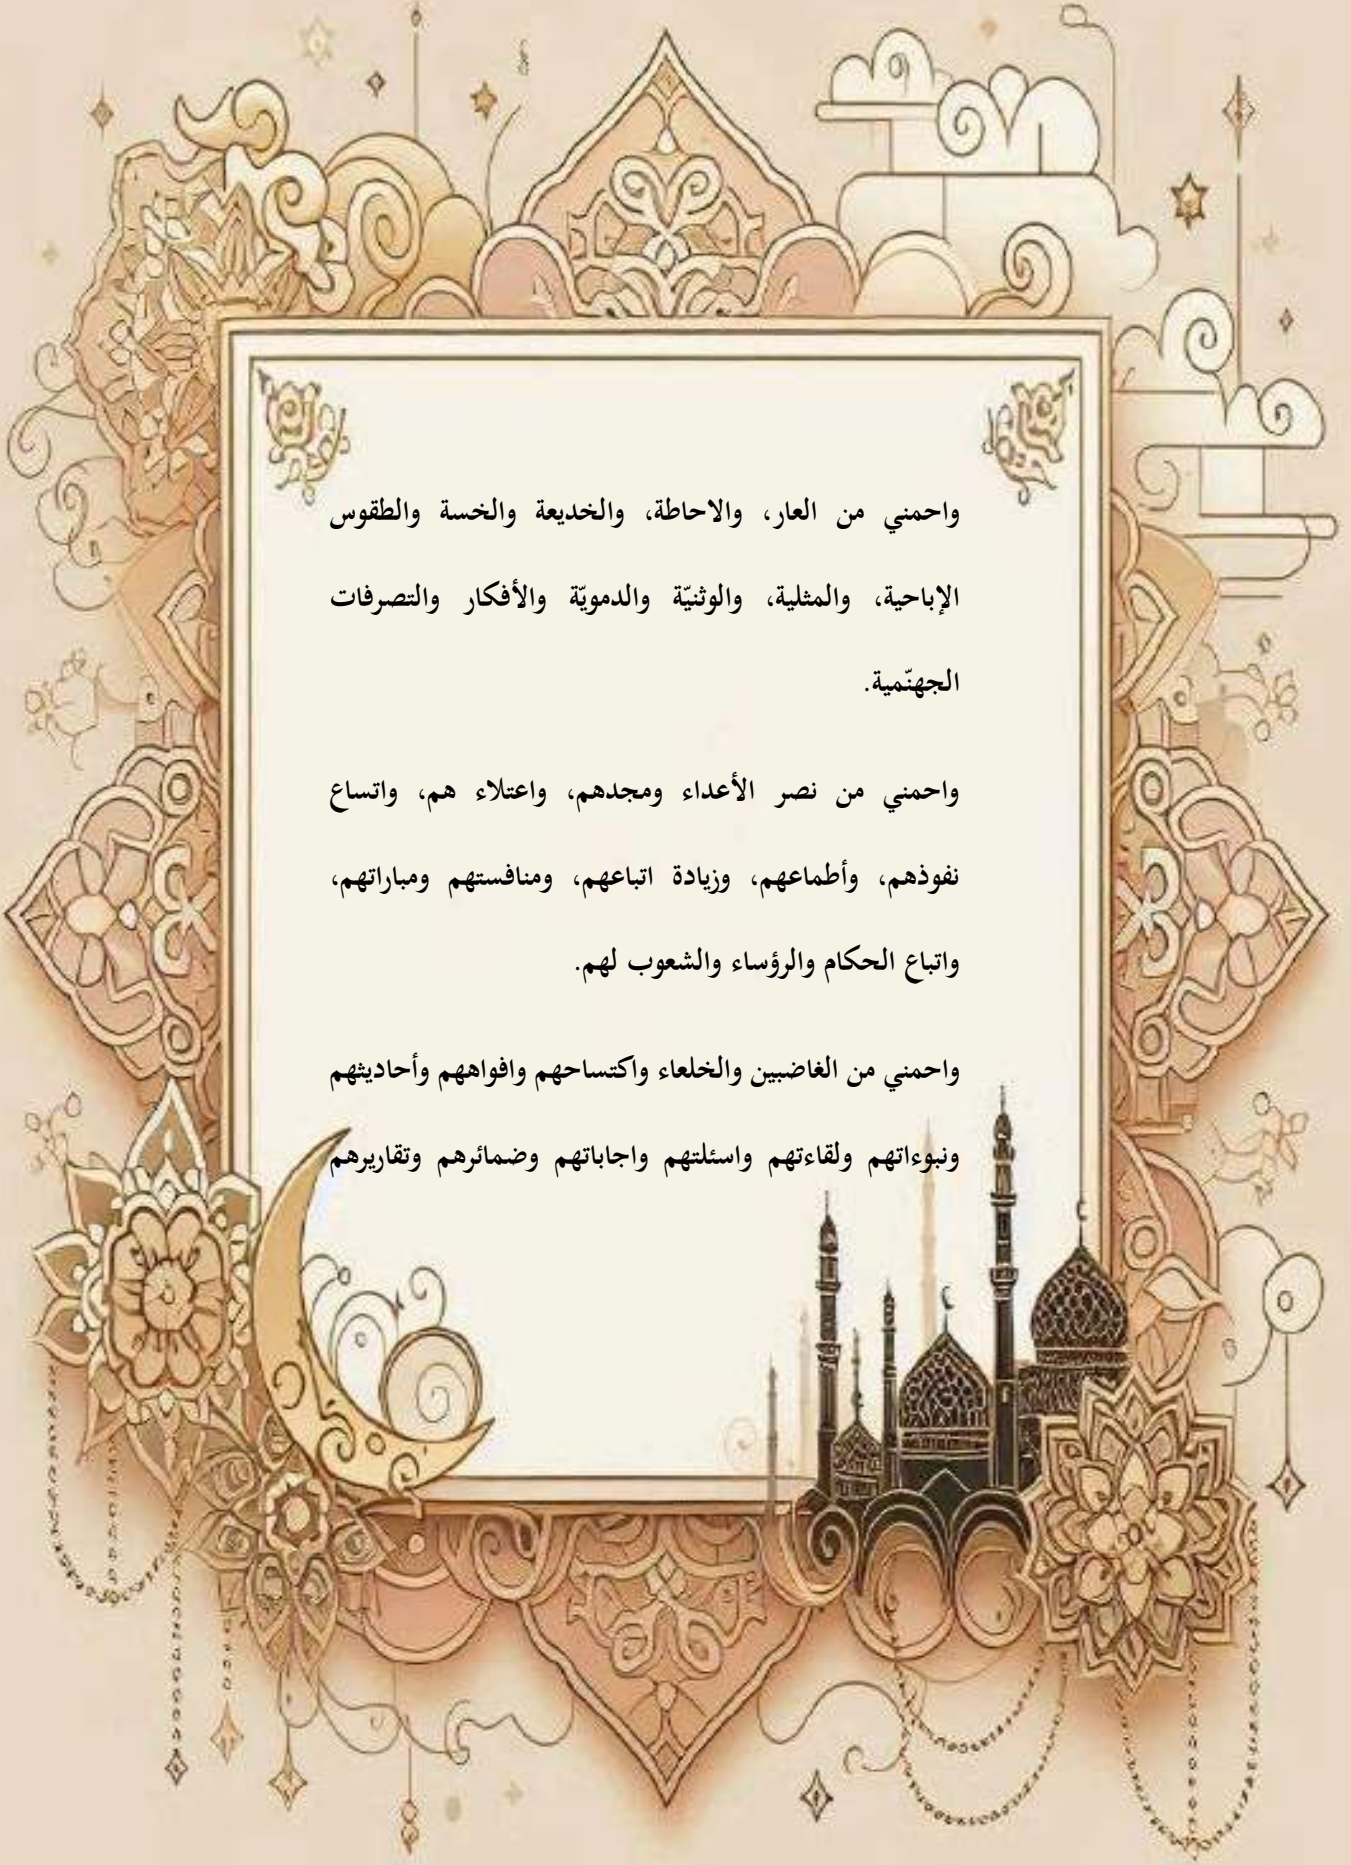 واحمني من العار، والاحاطة، والخديعة والخسة والطقوس
الإباحية، والمثلية، والوثنيّة والدمويّة والأفكار والتصرفات
الجهنّمية.
واحمني من نصر الأعداء ومجدهم، واعتلاء هم، واتساع
نفوذهم، وأطماعهم، وزيادة اتباعهم، ومنافستهم ومباراتهم،
واتباع الحكام والرؤساء والشعوب لهم.
واحمني من الغاضبين والخلعاء واكتساحهم وافواههم وأحاديثهم
ونبوءاتهم ولقاءتهم واسئلتهم واجاباتهم وضمائرهم وتقاريرهم